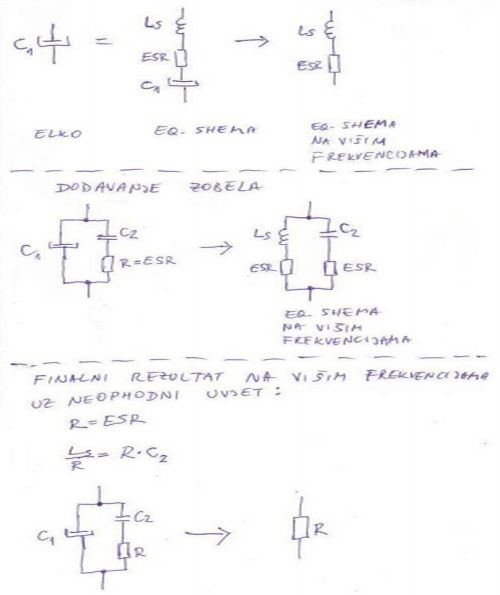 Ls
C1 = ESR → Ls
C1 ESR
ELKO EQ. SHEMA EQ. SHEMA
NA VIŠIM
FREKVENCIJAMA
DODAVANJE ZOBELA
C1 C2 → Ls C2
R=ESR ESR ESR
EQ. SHEMA
NA VIŠIM
FREKVENCIJAMA
FINALNI REZOLTAT NA VIŠIM FREKVENCIJAMA
UZ NEOPHODNI UVJET:
R=ESR
Ls/R = R·C2
C1 C2 → R
R